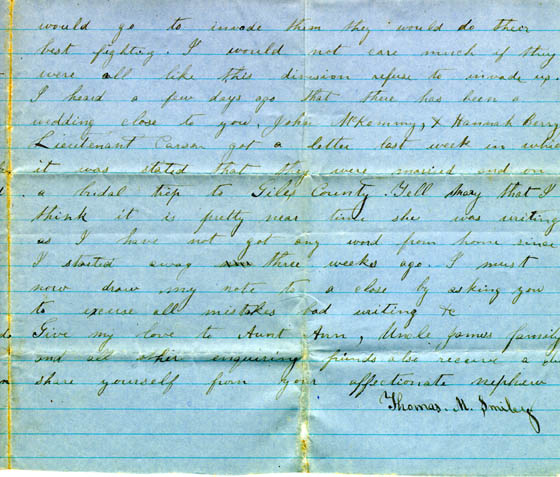 would go to invade them they would do their
best fighting. I would not care much if they
were all like this division refuse to invade up
I heard a few days ago that there has been a
wedding close to you, John McKommy, & Hannah Berry
Lieutenant Carson got a letter last week in whic
it was stated that they were married and on
a bridal trip to Giles County. Tell Mary that I
think it is pretty near time she was writing
as I have not got any word from home since
I started away three weeks ago. I must
now draw my note to a close by asking you
to excuse all mistakes bad writing &c
Give my love to Aunt Ann, Uncle James family
and all other enquiring friends also receive a due
share yourself from your affectionate nephew
Thomas. M. Smiley